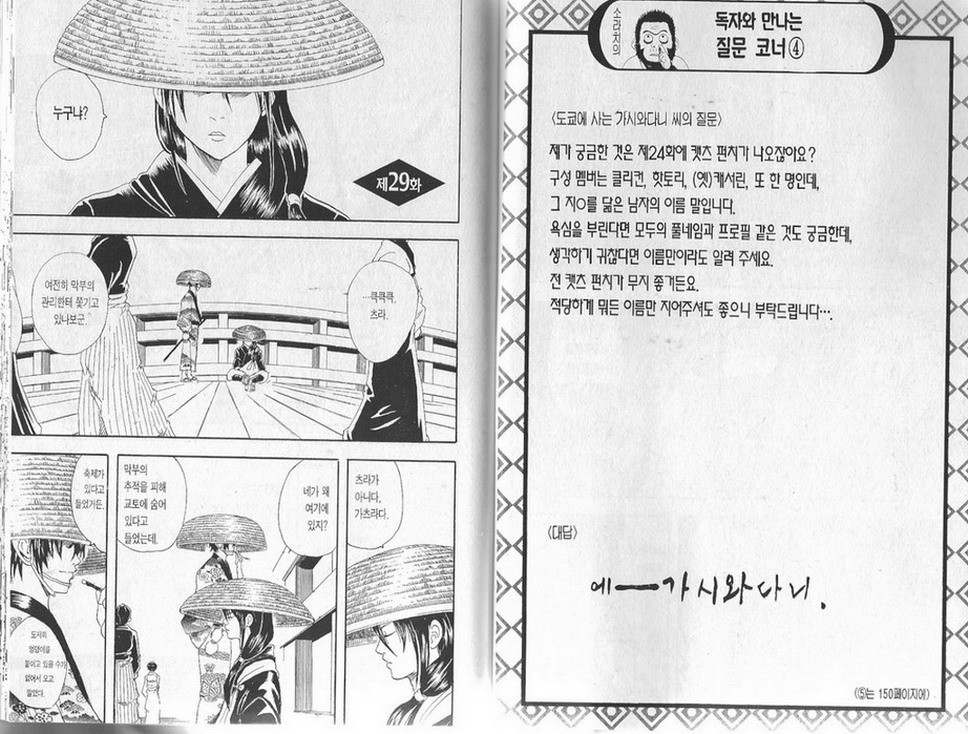 소라치의
독자와 만나는
질문 코너④
〈도쿄에 사는 가시와다니 씨의 질문〉
제가 궁금한 것은 제24화에 캣츠 펀치가 나오잖아요?
구성 멤버는 클리컨, 핫토리, (옛)캐서린, 또 한 명인데,
그 지O를 닮은 남자의 이름 말입니다.
욕심을 부린다면 모두의 풀네임과 프로필 같은 것도 궁금한데,
생각하기 귀찮다면 이름만이라도 알려 주세요.
전 캣츠 펀치가 무지 좋거든요.
적당하게 뭐든 이름만 지어주셔도 좋으니 부탁드립니다….
〈대답〉
에ー가시와다니.
(⑤는 150페이지에)
누구냐?
제29화
…큭큭큭,
츠라.
여전히 막부의
관리한테 쫓기고
있나보군.
츠라가
아니다,
가츠라다.
네가 왜
여기에
있지?
막부의
추적을 피해
교토에 숨어
있다고
들었는데.
축제가
있다고
들었거든.
도저히
엉덩이를
붙이고 있을 수가
없어서 오고
말았다.